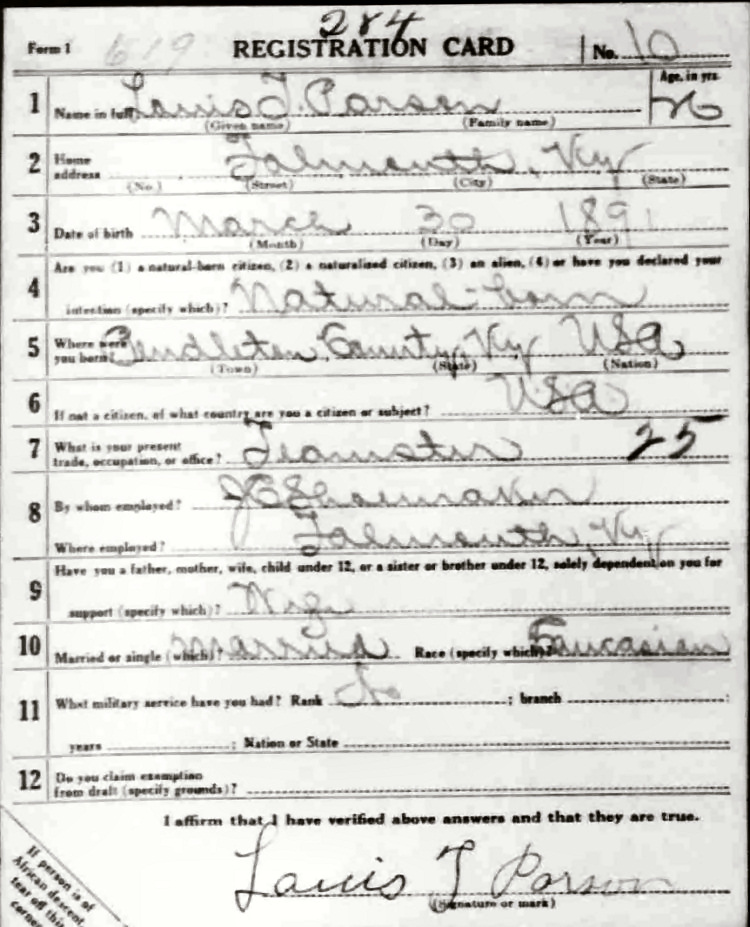 284
Form 1 619 REGISTRATION CARD No. 10
1 Name in full Louis T. Parson Age, in yrs. 26
(Given name) (Family name)
2 Home address Falmouth, Ky
(No.) (Street) (City) (State)
3 Date of birth March 30 1891
(Month) (Day) (Year)
4 Are you (1) a natural-born citizen, (2) a naturalized citizen, (3) an alien, (4) or have you declared your
intention (specify which)? Natural-born
5 Where were you born? Pendleton County, Ky USA
(Town) (State) (Nation)
6 If not a citizen, of what country are you a citizen or subject? USA
7 What is your present trade, occupation, or office? Teamster 25
8 By whom employed? J C Shoemaker
Where employed? Falmouth, Ky
9 Have you a father, mother, wife, child under 12, or a sister or brother under 12, solely dependent on you for
support (specify which)? Wife
10 Married or single (which)? Married Race (specify which)? Caucasian
11 What military service have you had? Rank ; branch ;
years ; Nation or State
12 Do you claim exemption
from draft (specify grounds)?
I affirm that I have verified above answers and that they are true.
Louis T Parson
(Signature or mark)
If person is of
African descent,
tear off this
corner